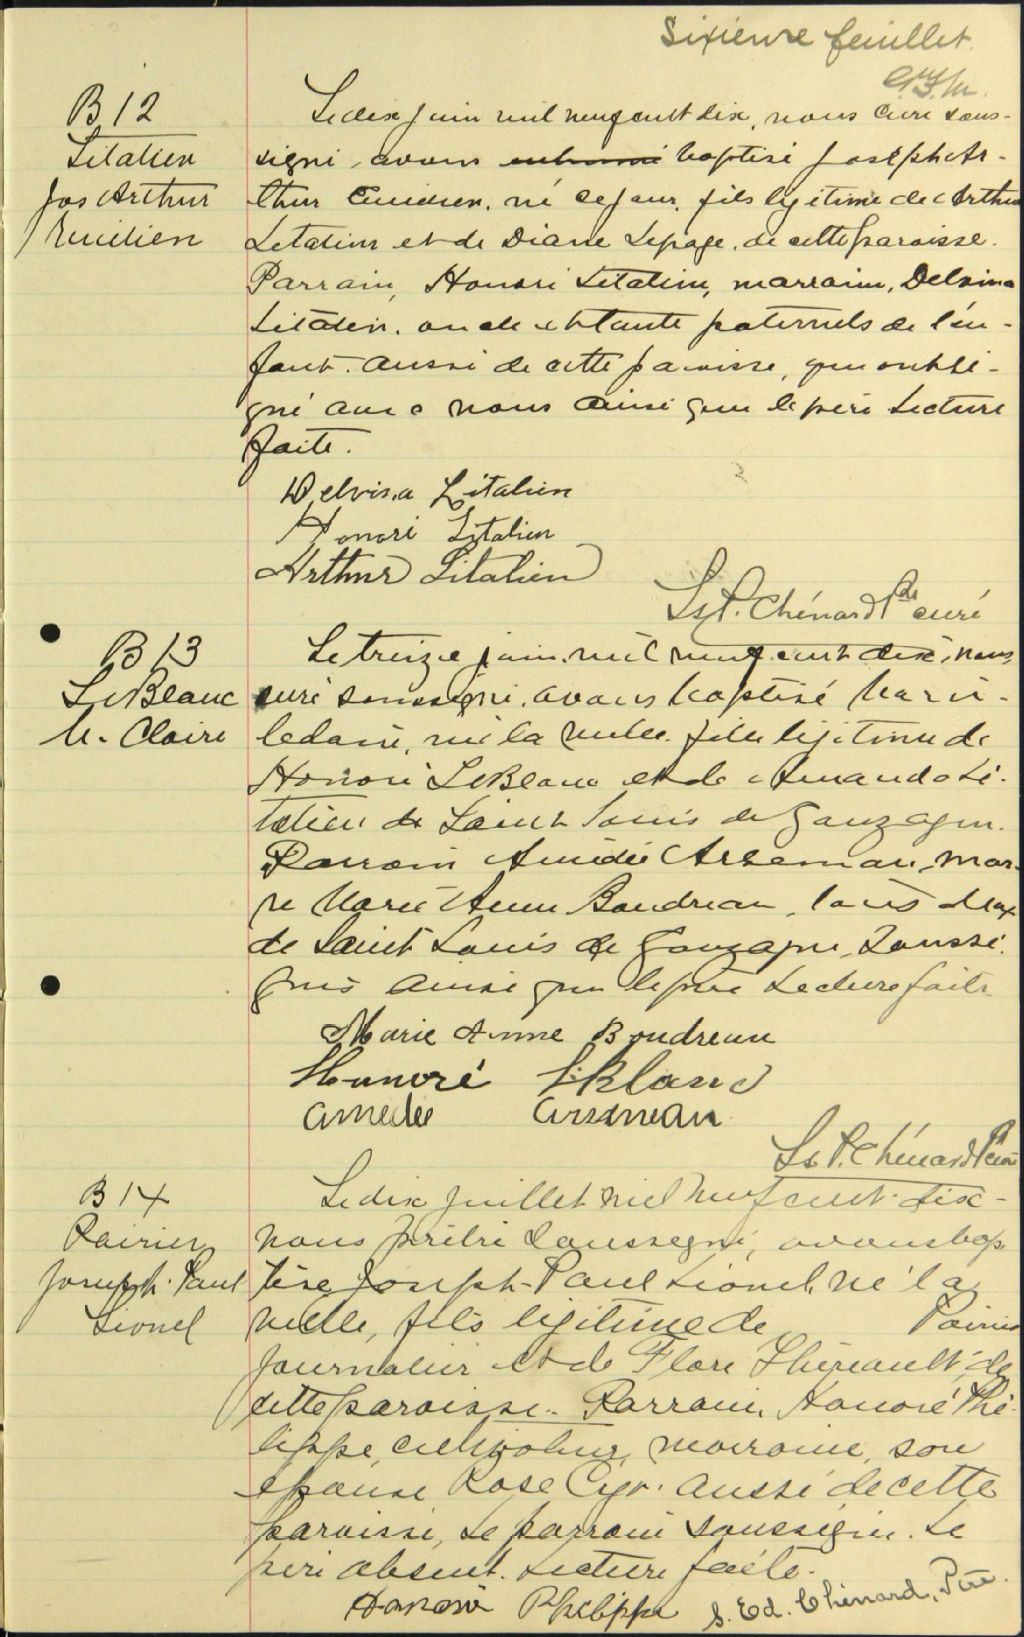 Sixième feuillet
B 12
Litalien
Jos Arthur
Emilien
Le dix juin mil neuf cent dix, nous curé sous-
signé, avons baptisé Joseph Ar-
thur Emilien, né ce jour, fils légitime de Arthur
Litalien et de Diane Lepage, de cette paroisse.
Parrain, Honoré Litalien, marraine, Delvina
Litalien, oncle et tante paternels de l'en-
fant. aussi de cette paroisse, qui ont si-
gné avec nous ainsi que le père Lecture
faite.
Delvina Litalien
Honoré Litalien
Arthur Litalien
Ls P. Chénard Ptre curé
B 13
LeBlanc
M. Claire
Le treize juin mil neuf cent dix, nous
curé soussigné, avons baptisé Marie
née la veille. fille légitime de
Honoré LeBlanc et de Amanda Li-
talien de Saint Louis de Gonzague.
Parrain Amédée Arseneau, mar-
re Marie Anne Boudreau, tous deux
de Saint Louis de Gonzague, soussi-
gnés ainsi que le père Lecture faite
Marie Anne Boudreau
Honoré LeBlanc
Amedee Arseneau
Ls P. Chénard Ptre curé
B 14
Poirier
Joseph. Paul
Lionel
Le dix juillet mil neuf cent dix-
nous prêtre soussigné, avons bap
tisé Joseph-Paul Lionel, né la
veille, fils légitime de Poirier
journalier et de Flore Thériault, de
cette paroisse. Parrain, Honoré Phi-
lippe, cultivateur, marraine, son
épouse Rose Cyr. aussi de cette
paroisse, Le parrain soussigné. Le
père absent. Lecture faite.
Honoré Philippe S. Ed. Chénard, Ptre.